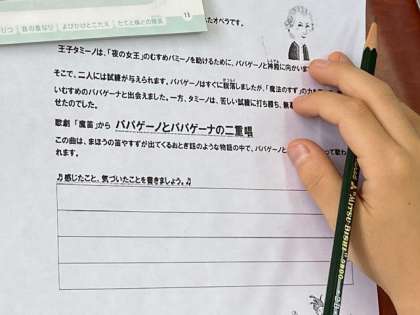 りつ｜音の重なり｜よびかけとこたえ｜たてと横との関係
11
たオペラです。
王子タミーノは、「夜の女王」のむすめパミーノを助けるために、パパゲーノと神殿に向かいま
そこで、二人には試練が与えられます。パパゲーノはすぐに脱落しましたが、「魔法のすず」の力を
いむすめのパパゲーナと出会えました。一方、タミーノは、苦しい試練に打ち勝ち、無事
せたのでした。
歌劇「魔笛」から パパゲーノとパパゲーナの二重唱
この曲は、まほうの笛やすずが出てくるおとぎ話のような物語の中で、パパゲーノと
れます。
って歌わ
♫感じたこと、気づいたことを書きましょう。♫
MITSU-BISHI 9800